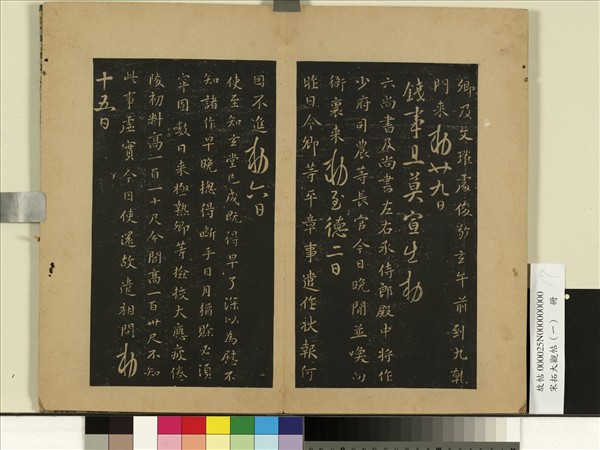 卿及文瓘處俊郝玄午前到九乾
門來敕廿九日
錢事且莫宣出敕
六尚書及尚書左右丞侍郎殿中將作
少府司農等長官今日晚間並喚向
衙裏來敕至德二日
昨日令卿等平章事遣作狀報何
因不進敕六日
使至知玄堂已成既得早了深以為慰不
知諸作早晚總得斷手日月猶賒必須
牢固數日來極熱卿等檢校大應疲倦
陵初料高一百一十尺今聞高一百卅尺不知
此事虛實今日使還故遣相問敕
十五日
故帖 000025N000000000
宋拓大觀帖(一) 冊